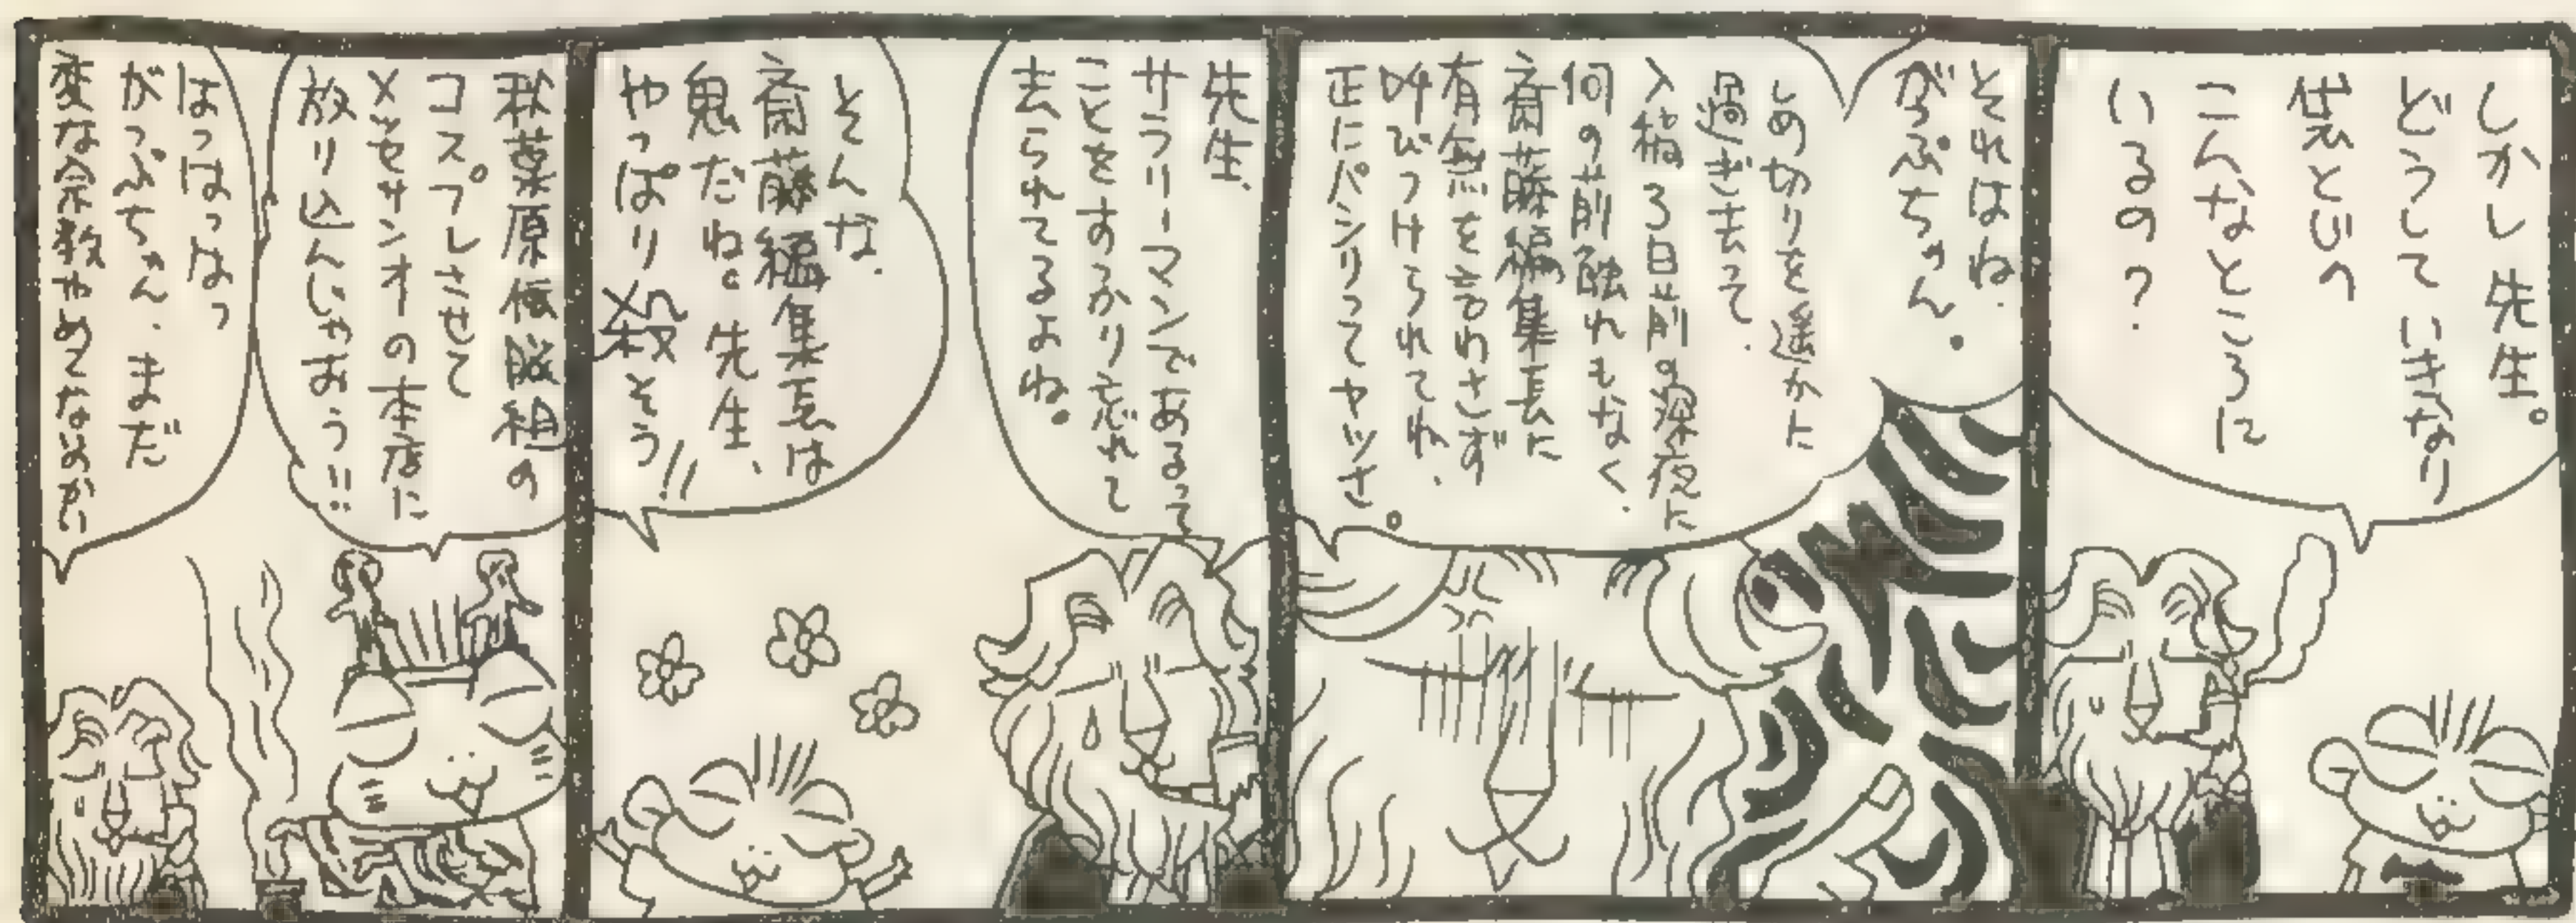 しかし先生。
どうしていきなり
袋とじの
こんなところに
いるの?
それはね.
がっぷちゃん。
しめ切りを遥かに
過ぎ去って.
入稿3日前の深夜に
何の前触れもなく.
斎藤編集長に
有無を言わさず
呼びつけられてね.
正にパシリってヤツさ。
先生.
サラリーマンであるって
ことをすっかり忘れて
去られてるよね。
そんな.
斎藤編集長は
鬼だね。先生、
やっぱり殺そう!!
秋葉原仮脳組の
コスプレさせて
メセサンオーの本店に
放り込んじゃおう!!
はっはっはっ
がっぷちゃん.まだ
変な余数やめてないのかい